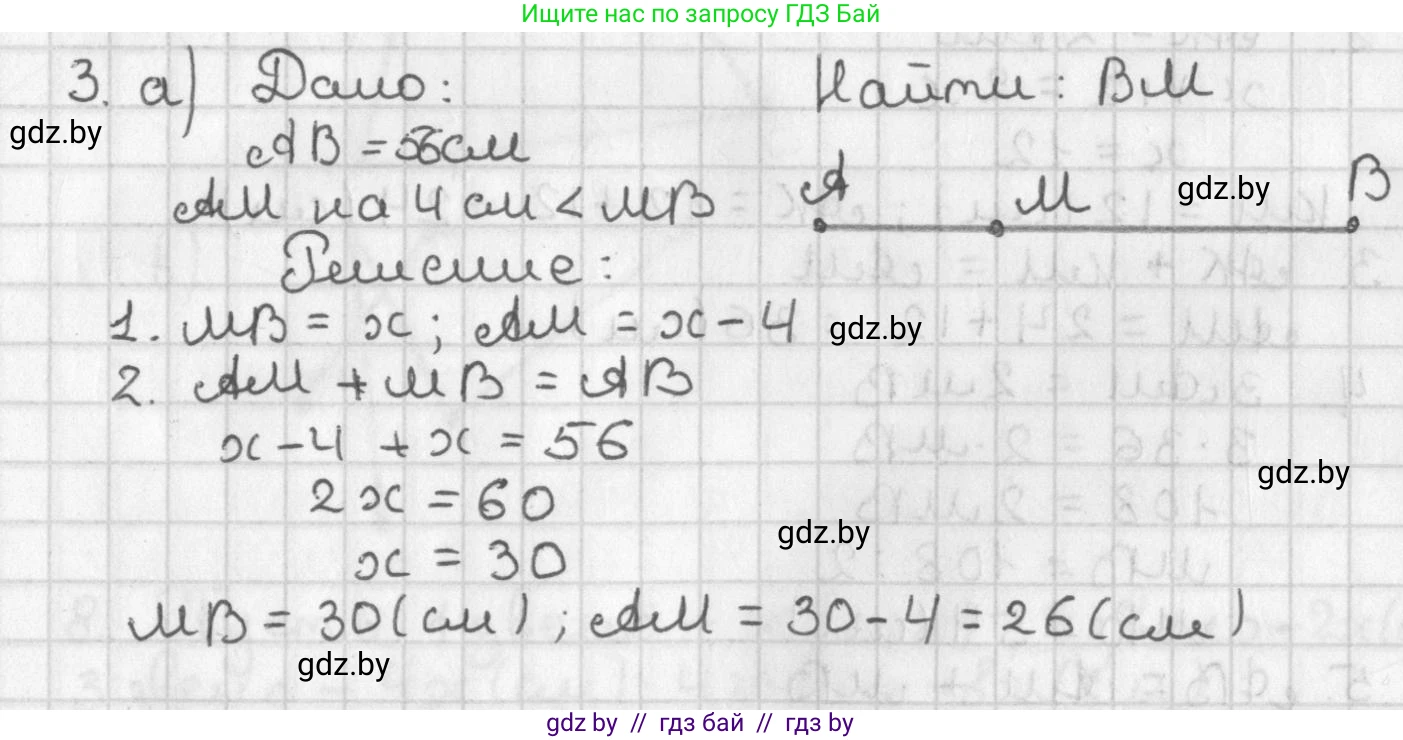 Ищите нас по запросу ГДЗ Бай
3. а) Дано: Найти: ВМ
gdz.by
АВ = 56см
АМ на 4 см < МВ
А М gdz.by В
Решение:
1. МВ = х; АМ = х - 4 gdz.by
2. АМ + МВ = АВ
х - 4 + х = 56
gdz.by
2х = 60
gdz.by
х = 30
МВ = 30(см); АМ = 30 - 4 = 26(см)
gdz.by
gdz.by // гдз бай // гдз by